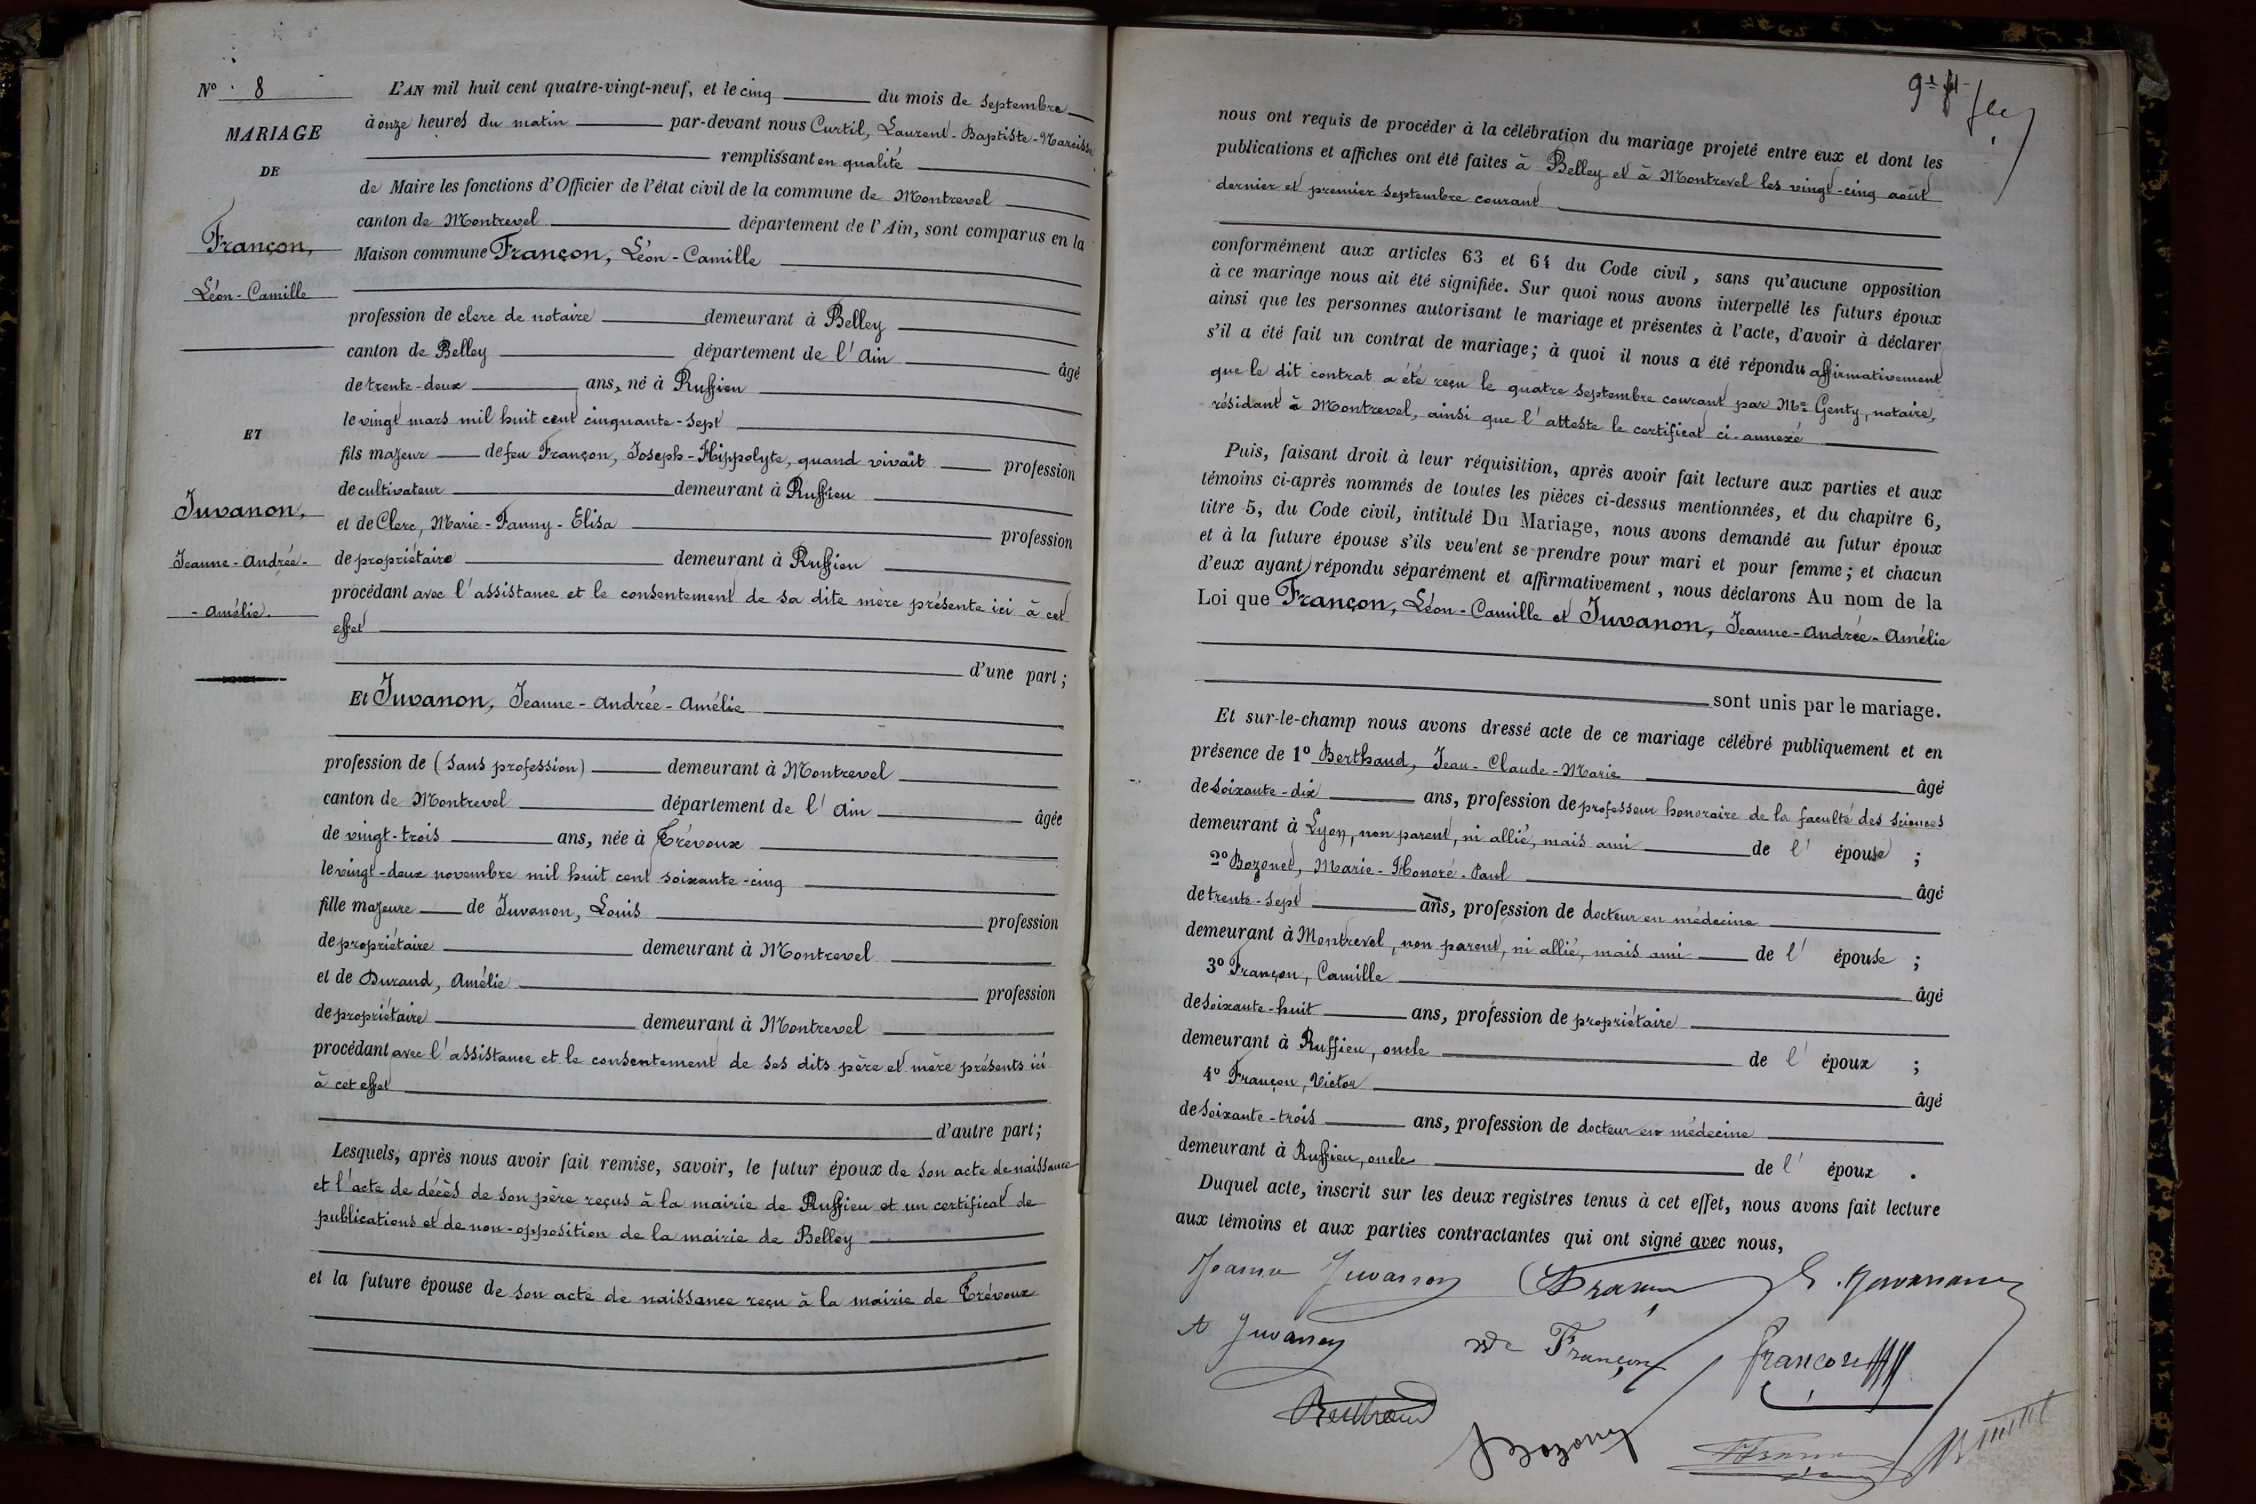 N° 8
MARIAGE
DE
Françon,
Léon-Camille
ET
Juvanon,
Jeanne-Andrée-
-Amélie.
L'AN mil huit cent quatre-vingt-neuf, et le cinq du mois de septembre
à onze heures du matin par-devant nous Curtil, Laurent-Baptiste-Narcisse
remplissant en qualité
de Maire les fonctions d'Officier de l'état civil de la commune de Montrevel
canton de Montrevel département de l'Ain, sont comparus en la
Maison commune Françon, Léon-Camille
profession de clerc de notaire demeurant à Belley
canton de Belley département de l'Ain âgé
de trente-deux ans, né à Ruffieu
le vingt mars mil huit cent cinquante-sept
fils majeur de feu Françon, Joseph-Hippolyte, quand vivait profession
de cultivateur demeurant à Ruffieu
et de Clerc, Marie-Fanny-Elisa profession
de propriétaire demeurant à Ruffieu
procédant avec l'assistance et le consentement de sa dite mère présente ici à cet
effet
d'une part;
Et Juvanon, Jeanne-Andrée-Amélie
profession de (sans profession) demeurant à Montrevel
canton de Montrevel département de l'Ain âgée
de vingt-trois ans, née à Trévoux
le vingt-deux novembre mil huit cent soixante-cinq
fille majeure de Juvanon, Louis profession
de propriétaire demeurant à Montrevel
et de Durand, Amélie profession
de propriétaire demeurant à Montrevel
procédant avec l'assistance et le consentement de ses dits père et mère présents ici
à cet effet
d'autre part;
Lesquels, après nous avoir fait remise, savoir, le futur époux de son acte de naissance
et l'acte de décès de son père reçus à la mairie de Ruffieu et un certificat de
publications et de non-opposition de la mairie de Belley
et la future épouse de son acte de naissance reçu à la mairie de Trévoux
nous ont requis de procéder à la célébration du mariage projeté entre eux et dont les
publications et affiches ont été faites à Belley et à Montrevel les vingt-cinq août
dernier et premier septembre courant
conformément aux articles 63 et 64 du Code civil, sans qu'aucune opposition
à ce mariage nous ait été signifiée. Sur quoi nous avons interpellé les futurs époux
ainsi que les personnes autorisant le mariage et présentes à l'acte, d'avoir à déclarer
s'il a été fait un contrat de mariage; à quoi il nous a été répondu affirmativement
que le dit contrat a été reçu le quatre septembre courant par Me Genty, notaire,
résidant à Montrevel, ainsi que l'atteste le certificat ci-annexé
Puis, faisant droit à leur réquisition, après avoir fait lecture aux parties et aux
témoins ci-après nommés de toutes les pièces ci-dessus mentionnées, et du chapitre 6,
titre 5, du Code civil, intitulé Du Mariage, nous avons demandé au futur époux
et à la future épouse s'ils veulent se prendre pour mari et pour femme; et chacun
d'eux ayant répondu séparément et affirmativement, nous déclarons Au nom de la
Loi que Françon, Léon-Camille et Juvanon, Jeanne-Andrée-Amélie
sont unis par le mariage.
Et sur-le-champ nous avons dressé acte de ce mariage célébré publiquement et en
présence de 1° Berthaud, Jean-Claude-Marie âgé
de soixante-dix ans, profession de professeur honoraire de la faculté des sciences
demeurant à Lyon, non parent, ni allié, mais ami de l'épouse;
2° Bozonet, Marie-Honoré-Paul âgé
de trente-sept ans, profession de docteur en médecine
demeurant à Montrevel, non parent, ni allié, mais ami de l'épouse;
3° Françon, Camille âgé
de soixante-huit ans, profession de propriétaire
demeurant à Ruffieu, oncle de l'époux;
4° Françon, Victor âgé
de soixante-trois ans, profession de docteur en médecine
demeurant à Ruffieu, oncle de l'époux.
Duquel acte, inscrit sur les deux registres tenus à cet effet, nous avons fait lecture
aux témoins et aux parties contractantes qui ont signé avec nous,
Jeanne Juvanon Françon L. Juvanon
A Juvanon Françon françon
Berthaud
Bozonet